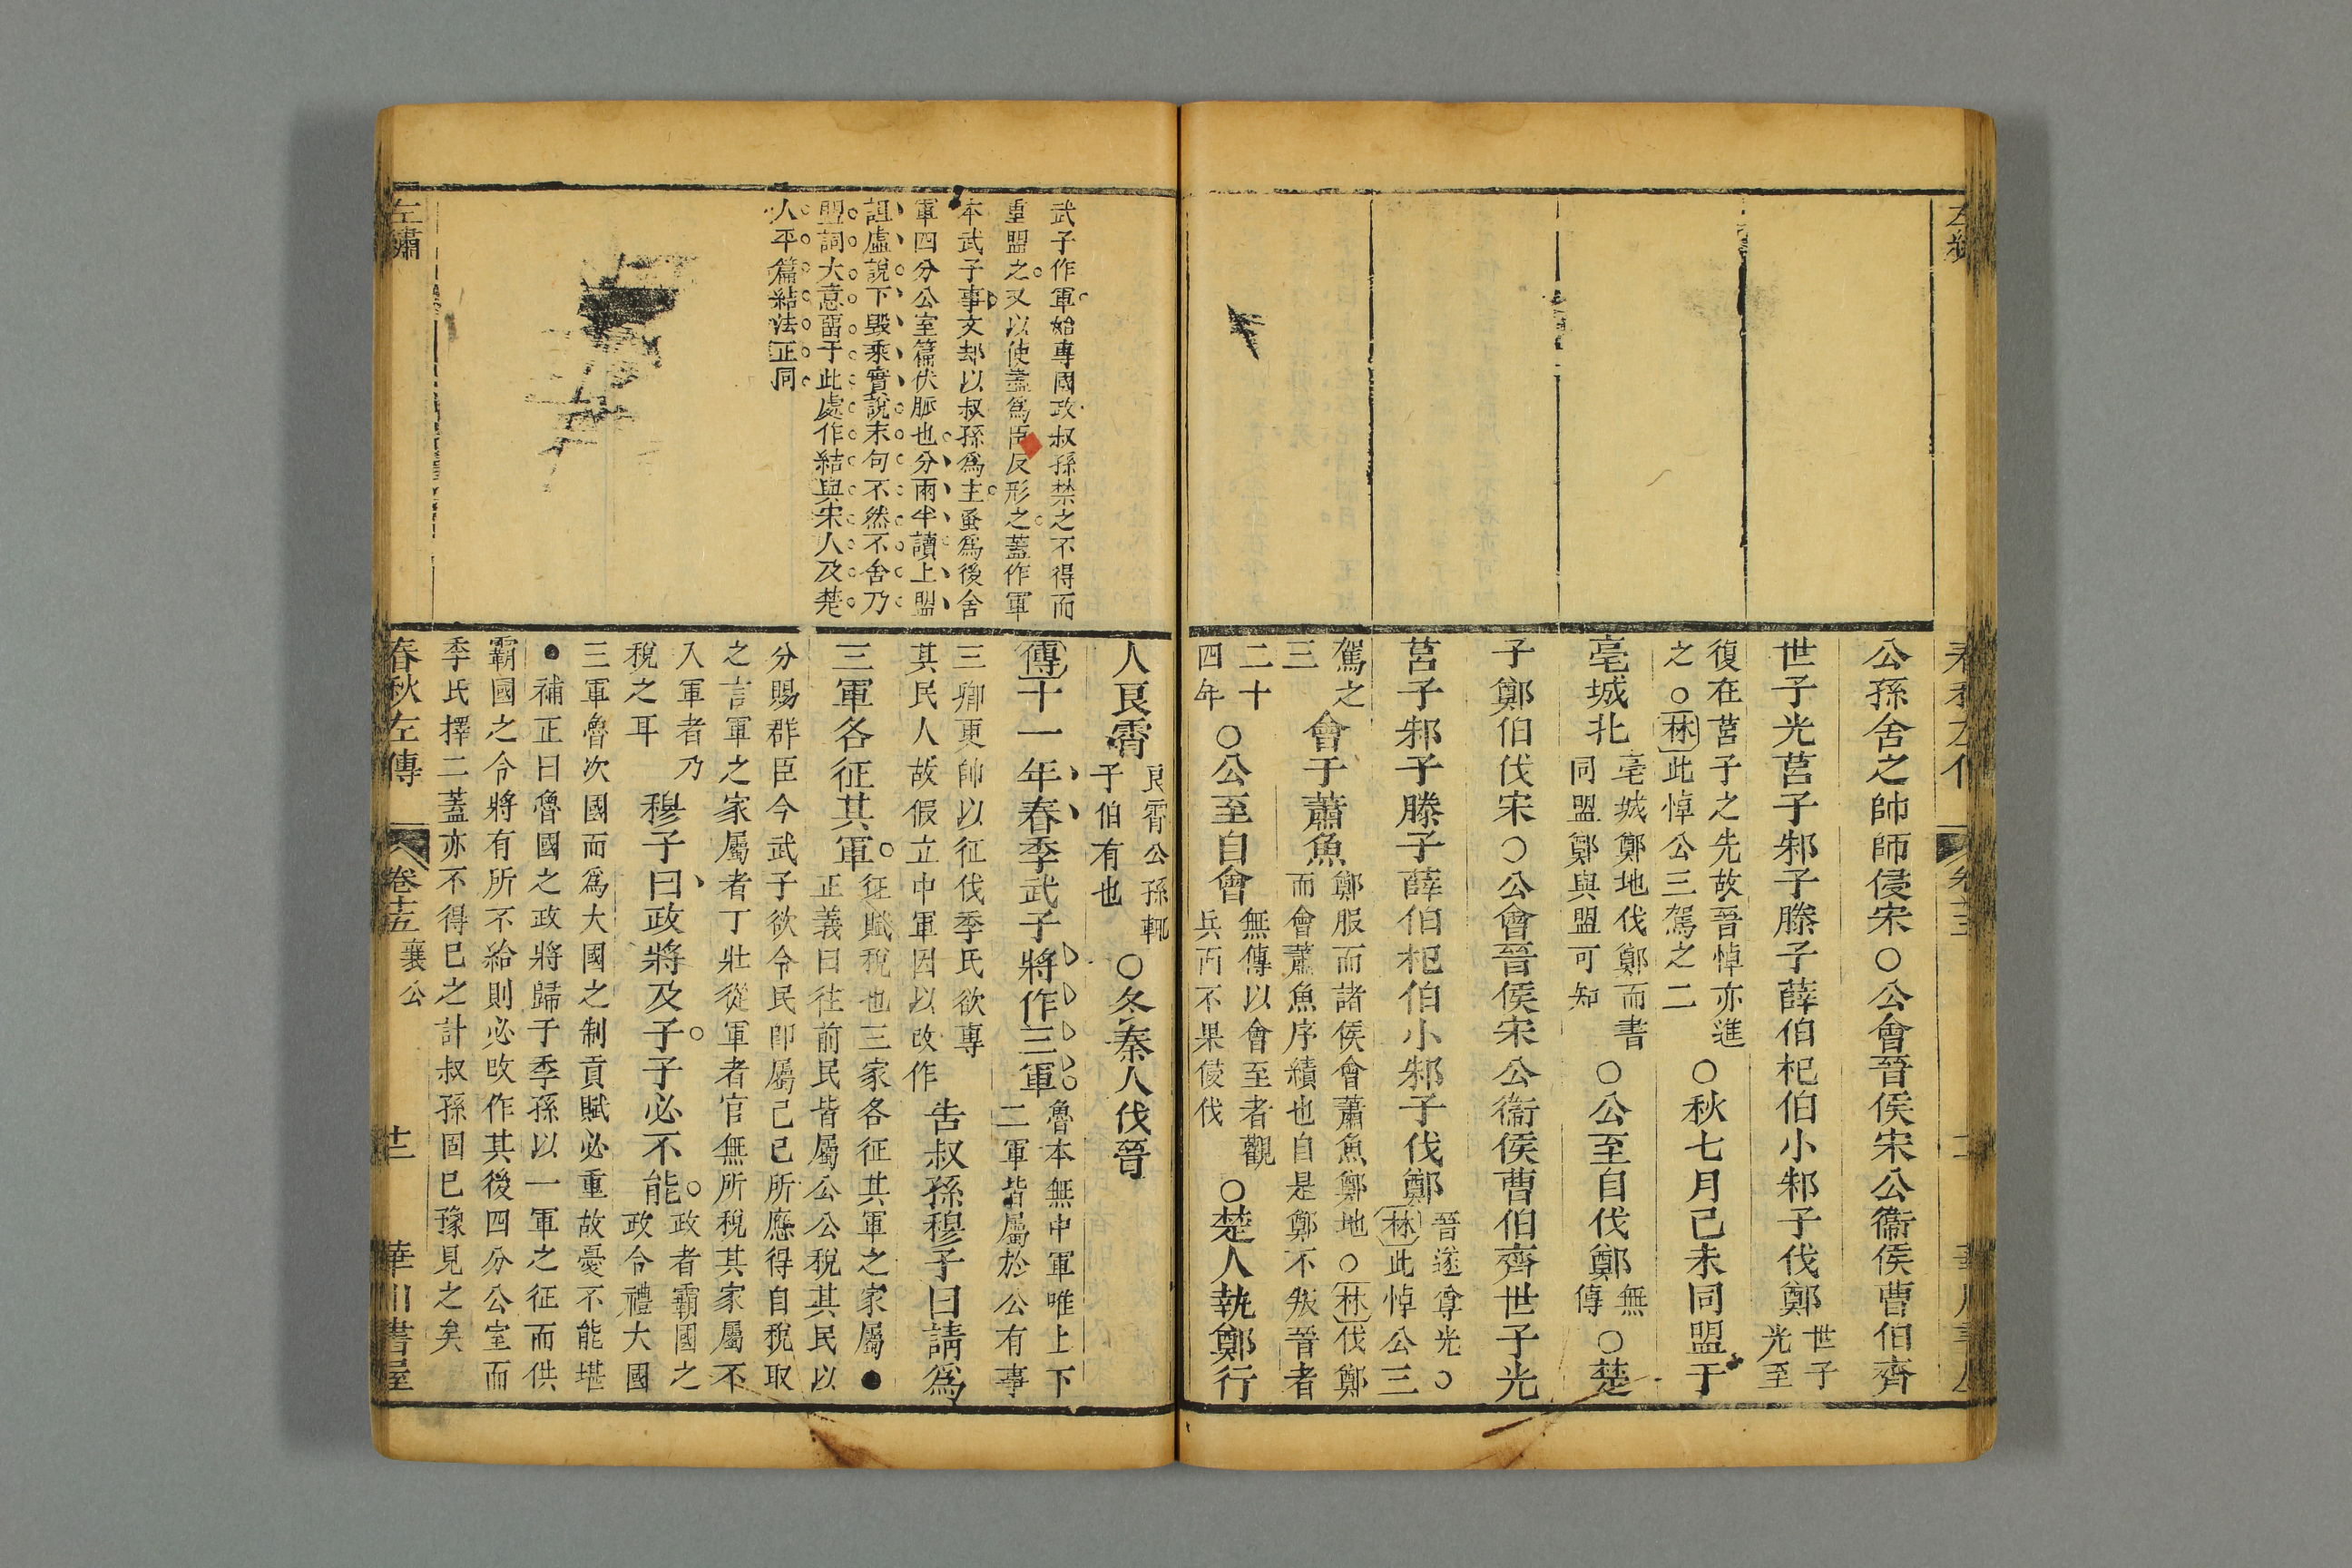 公孫舍之帥師侵宋○公會晉侯宋公衞侯曹伯齊
世子光莒子邾子滕子薛伯杞伯小邾子伐鄭
世子
光至
復在莒子之先故晉悼亦進
之○林此悼公三駕之二
○秋七月己未同盟于
亳城北
亳城鄭地伐鄭而書
同盟鄭與盟可知
○公至自伐鄭
無
傳
○楚
子鄭伯伐宋○公會晉侯宋公衞侯曹伯齊世子光
莒子邾子滕子薛伯杞伯小邾子伐鄭
晉遂尊光○
林此悼公三
駕之
三
會于蕭魚
鄭服而諸侯會蕭魚鄭地○林伐鄭
而會蕭魚序績也自是鄭不叛晉者
二十
四年
○公至自會
無傳以會至者觀
兵而不果侵伐
○楚人執鄭行
武子作軍始專國政叔孫禁之不得而
重盟之又以使盡爲臣反形之蓋作軍
本武子事文却以叔孫爲主蚤爲後舍
軍四分公室篇伏脈也分兩半讀上盟
詛虛說下毀乘實說末句不然不舍乃
盟詞大意畱于此處作結與宋人及楚
人平篇結法正同
人良霄
良霄公孫輒
子伯有也
○冬秦人伐晉
傳十一年春季武子將作三軍
魯本無中軍唯上下
二軍皆屬於公有事
三卿更帥以征伐季氏欲專
其民人故假立中軍因以改作
告叔孫穆子曰請爲
三軍各征其軍
征賦稅也三家各征其軍之家屬●
正義曰往前民皆屬公公稅其民以
分賜群臣今武子欲令民卽屬己己所應得自稅取
之言軍之家屬者丁壯從軍者官無所稅其家屬不
入軍者乃
稅之耳
穆子曰政將及子子必不能
政者霸國之
政令禮大國
三軍魯次國而爲大國之制貢賦必重故憂不能堪
●補正曰魯國之政將歸于季孫以一軍之征而供
霸國之令將有所不給則必改作其後四分公室而
季氏擇二蓋亦不得已之計叔孫固已豫見之矣
左繡
春秋左傳
卷十五
襄公
十二
華川書屋